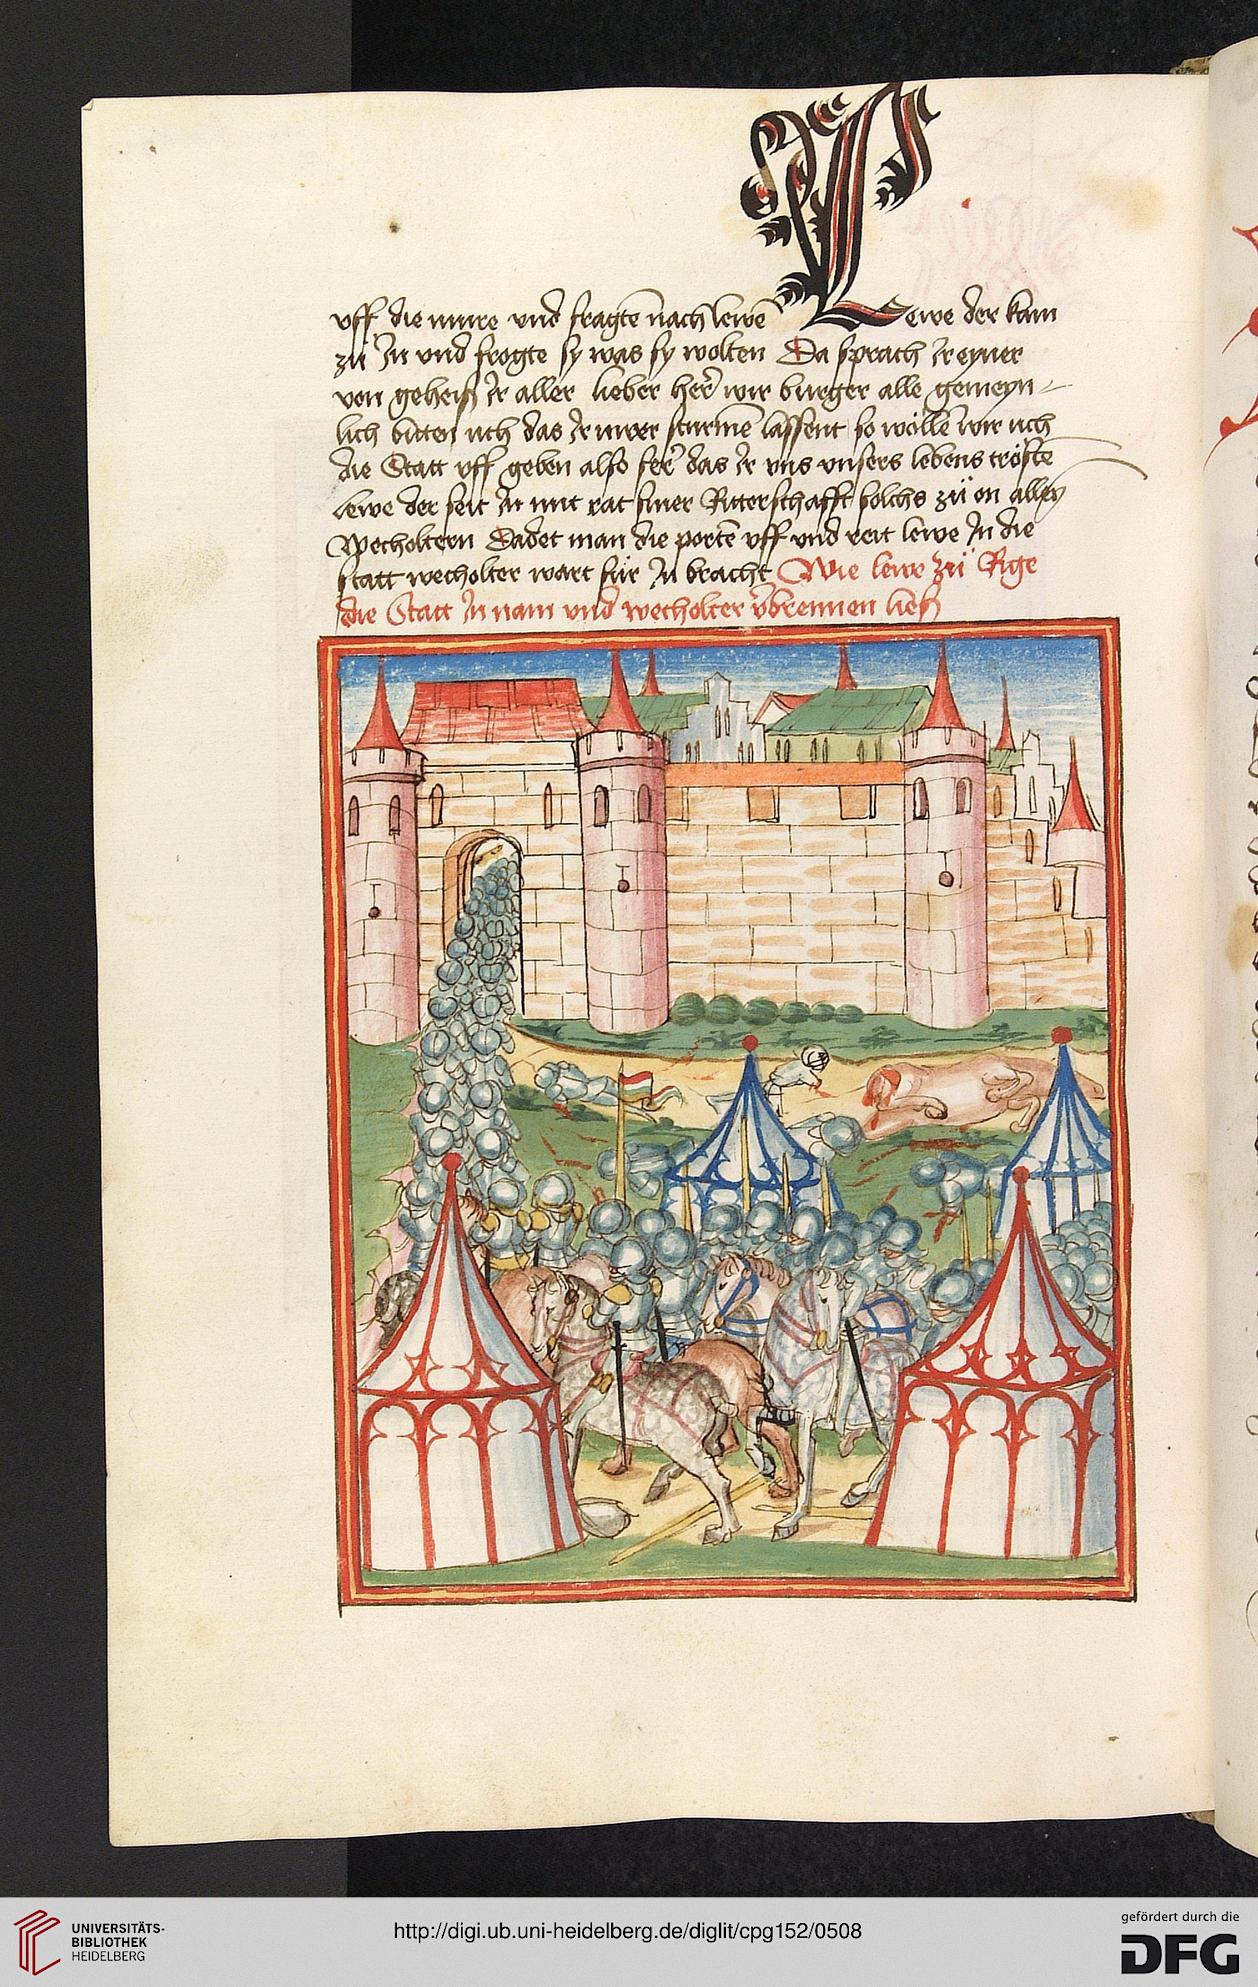 uff die mure und fragtē nach lewē Lewe der kam
zü In und frogte sy was sy wolten Da sprach Ir eyner
von geheiß Ir aller lieber her̄ wir burger alle gemeyn-
lich bitten uch das Ir uwer sturmē lassent so wöllē wir uch
die Statt uff geben also fer̄ das Ir uns unsers lebens tröste
Lewe der seit In mit rat siner Ritterschafft solchs zü on allein
Wecholtern Dadet man die portē uff und reit lewe In die
statt wecholter wart für In bracht Wie lewe zü Rige
die Statt In nam und wecholter v̄brennen ließ
UNIVERSITÄTS-
BIBLIOTHEK
HEIDELBERG
http://digi.ub.uni-heidelberg.de/diglit/cpg152/0508
gefördert durch die
DFG